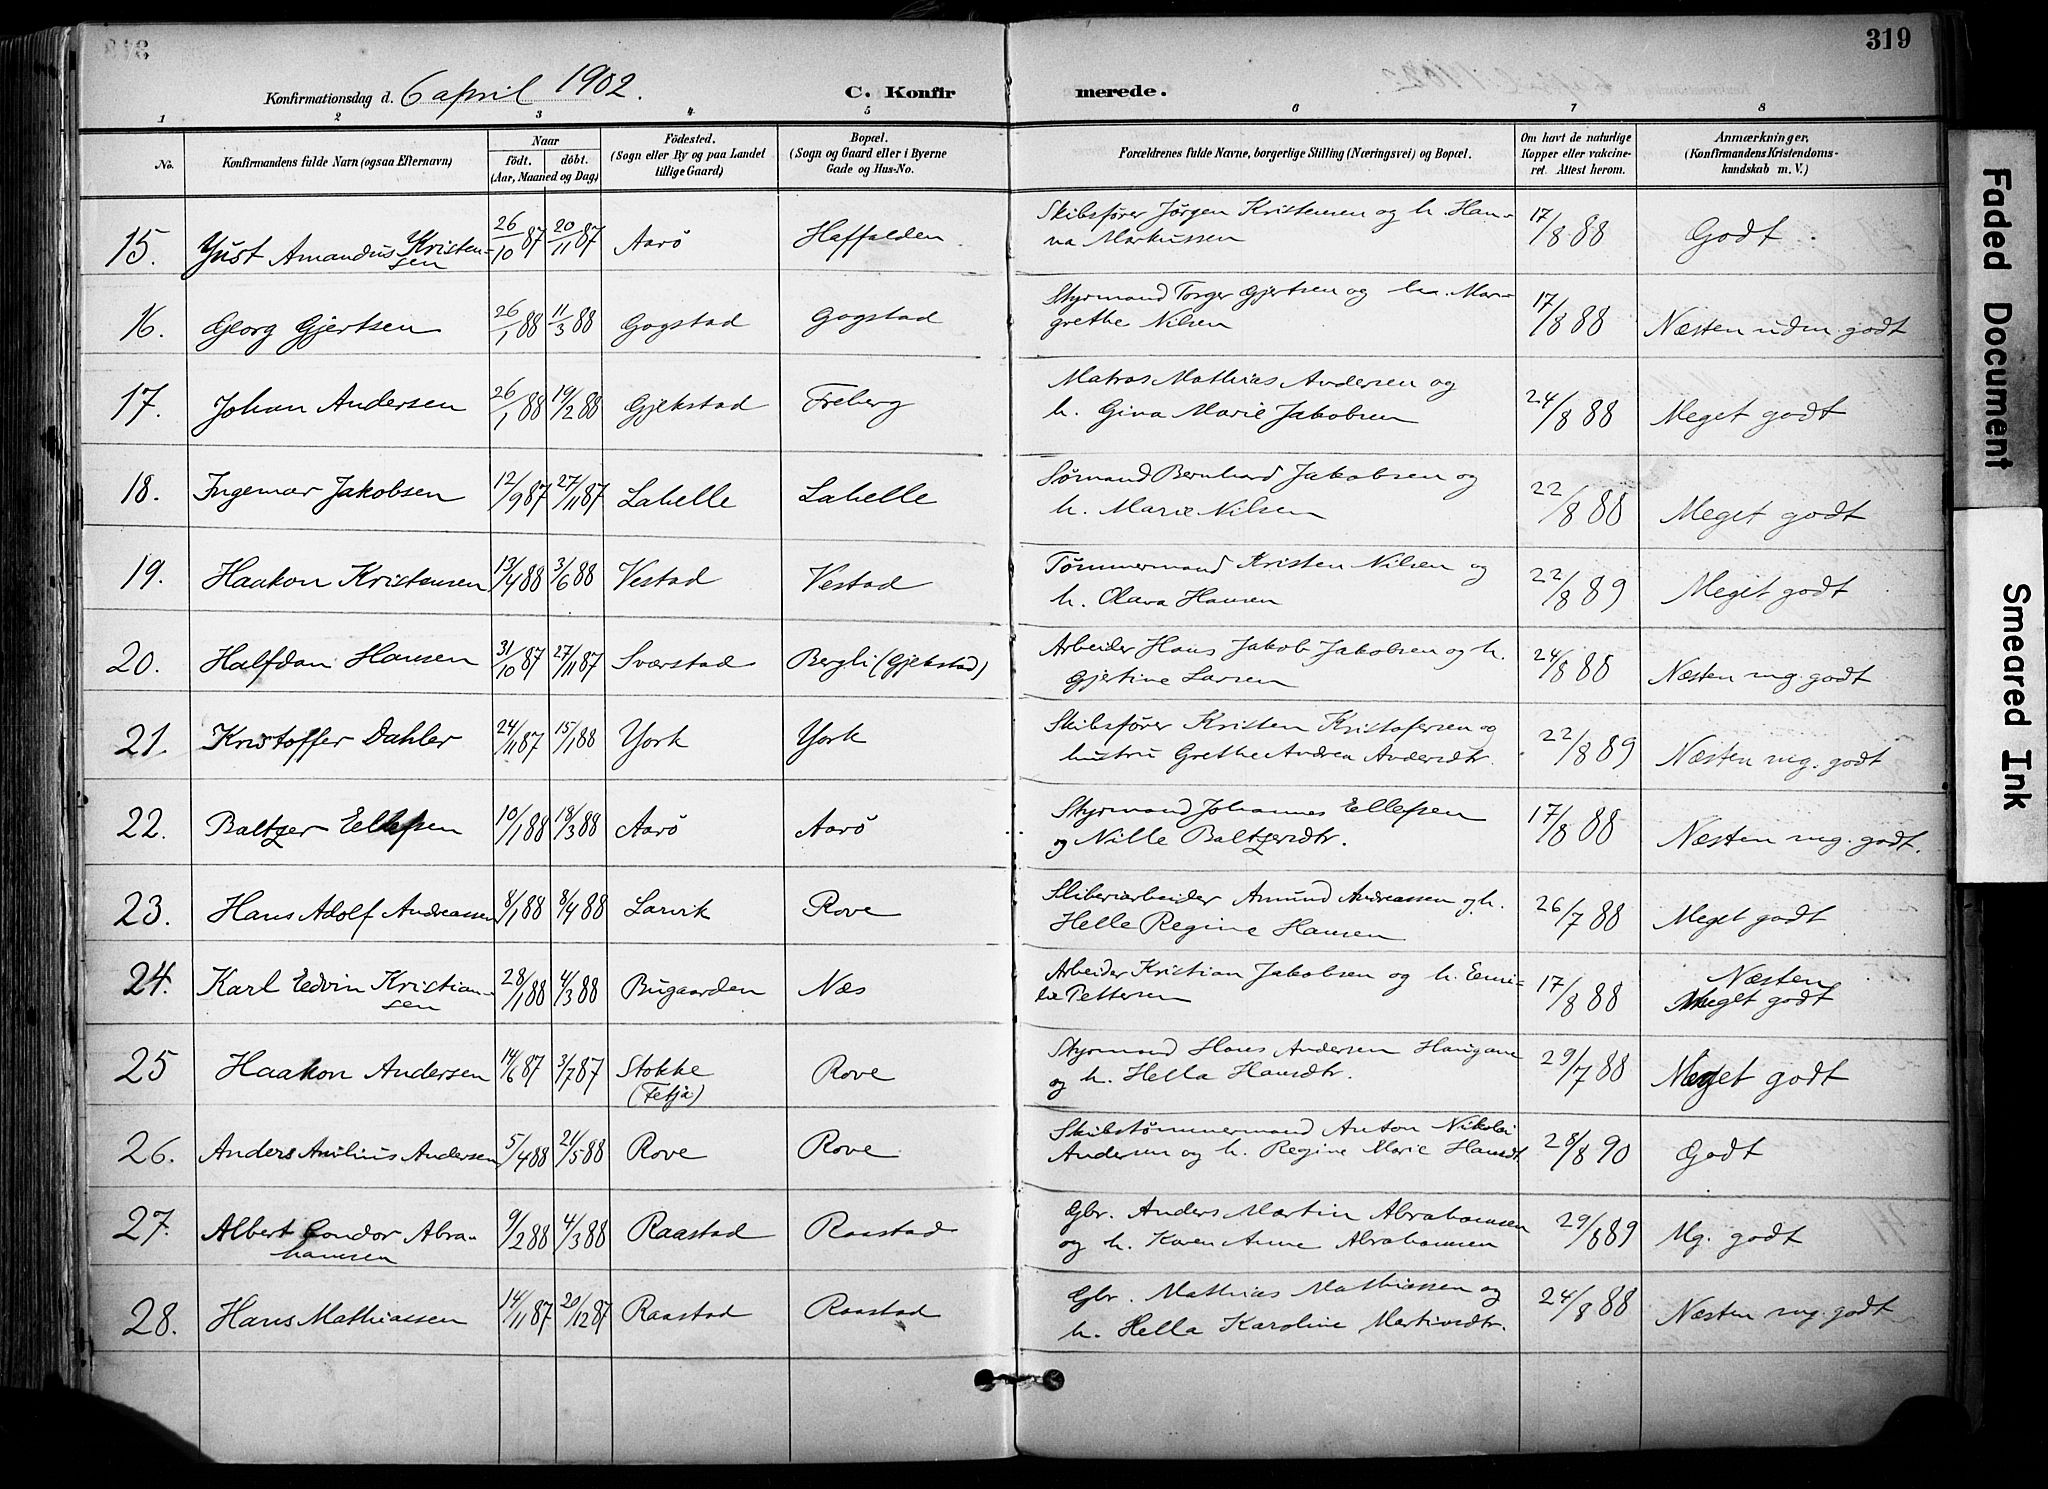 319
Konfirmationsdag d. 6 april 1902. C. Konfirmerede.
1 2 3 4 5 6 7 8
No. Konfirmandens fulde Navn (ogsaa Efternavn) Naar født. døbt. (Aar, Maaned og Dag) Födested. (Sogn eller By og paa Landet tillige Gaard) Bopæl. (Sogn og Gaard eller i Byerne Gade og Hus-No. Forældrenes fulde Navne, borgerlige Stilling (Næringsvei) og Bopæl. Om havt de naturlige Kopper eller vakcineret. Attest herom. Anmærkninger, (Konfirmandens Kristendomskundskab m. V.)
15. Yust Amandus Kristensen 26/10 87 20/11 87 Aarö Haffalden. Skibsfører Jørgen Kristensen og h. Hanna Markussen 17/8 88 Godt.
16. Georg Gjertsen 26/1 88 11/3 88 Gogstad Gogstad Styrmand Torger Gjertsen og h. Margrethe Nilsen 17/8 88 Næsten uden godt
17. Johan Andersen 26/1 88 19/2 88 Gjekstad Freberg Matros Mathias Andersen og h. Gina Marie Jakobsen 24/8 88 Meget godt
18. Ingemar Jakobsen 12/9 87 27/11 87 Lahelle Lahelle Sømand Bernhard Jakobsen og h. Marie Nilsen 22/8 88 Meget godt
19. Haakon Kristensen 13/4 88 3/6 88 Vestad Vestad Tømmermand Kristen Nilsen og h. Olava Hansen 22/8 89 Meget godt
20. Halfdan Hansen 31/10 87 27/11 87 Sværstad Bergli (Gjekstad) Arbeider Hans Jakob Jakobsen og h. Gjertine Larsen 24/8 88 Næsten mg. godt
21. Kristoffer Dahler 24/11 87 15/1 88 York York Skibsfører Kristen Kristofersen og hustru Grethe Andrea Andersdtr. 22/8 89 Næsten mg. godt
22. Baltzer Ellefsen 10/1 88 18/3 88 Aarö Aarö Styrmand Johannes Ellefsen og Nille Baltzersdtr. 17/8 88 Næsten mg. godt.
23. Hans Adolf Andreassen 8/1 88 8/4 88 Larvik Rove Sliberiarbeider Amund Andreassen og h. Helle Regine Hansen 26/7 88 Meget godt
24. Karl Edvin Kristiansen 28/1 88 4/3 88 Bugaarden Næs Arbeider Kristian Jakobsen og h. Emilie Pettersen 17/8 88 Næsten Meget godt
25 Haakon Andersen 14/6 87 3/7 87 Stokke (Fetja) Rove Styrmand Hans Andersen Haugane og h. Hella Hansdtr. 29/7 88 Meget godt
26. Anders Anilius Andersen 5/4 88 21/5 88 Rove Rove Skibstømmermand Anton Nikolai Andersen og h. Regine Marie Hansdt. 28/8 90 Godt
27. Albert Condor Abrahamsen 9/2 88 4/3 88 Raastad Raastad Gbr. Anders Martin Abrahamsen og h. Karen Anne Abrahamsen 29/8 89 Mg. godt
28. Hans Mathiassen 14/11 87 20/12 87 Raastad Raastad Gbr. Mathias Mathiassen og h. Hella Karoline Martinsdtr. 24/8 88 Næsten mg. godt
Faded Document
Smeared Ink